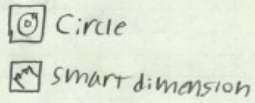 Circle
smart dimension